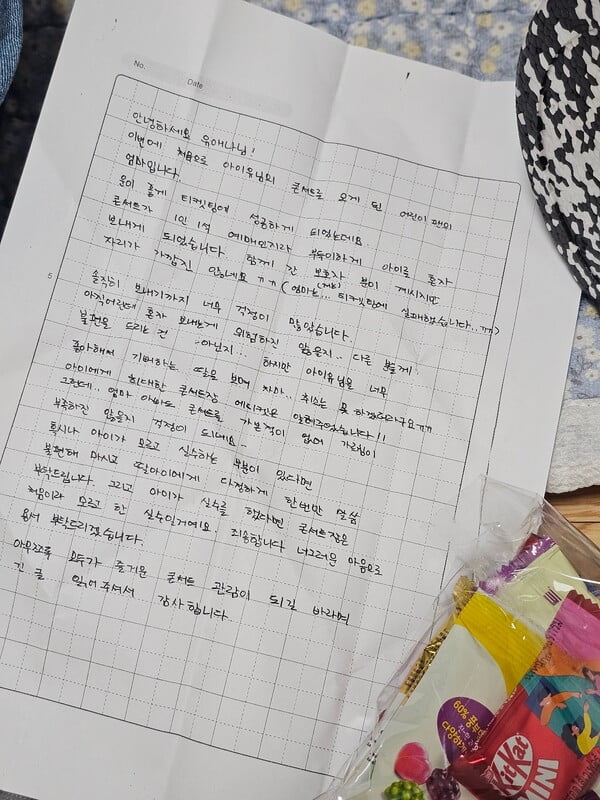 No.
Date
안녕하세요 유애나님!
이번에 처음으로 아이유님의 콘서트를 오게 된 어린이 팬의
엄마입니다.
운이 좋게 티켓팅에 성공하게 되었는데요.
콘서트가 1인 1석 예매인지라 부득이하게 아이를 혼자
보내게 되었습니다. 함께 간 보호자 분이 계시지만
자리가 가깝진 않네요 ㅠㅠ (엄마는... 티켓팅에 실패했습니다..ㅠㅠ)
5
솔직히 보내기까지 너무 걱정이 많았습니다.
아직어린데 혼자 보내는게 위험하진 않을지.. 다른 분들께
불편을 드리는 건 아닌지.. 하지만 아이유님을 너무
좋아해서 기뻐하는 딸을 보며 차마.. 취소는 못 하겠더라구요ㅠㅠ
아이에게 최대한 콘서트장 에티켓은 알려주었습니다!!
그런데.. 엄마 아빠도 콘서트를 가본적이 없어 가르침이
부족하진 않을지 걱정이 되네요~
혹시나 아이가 모르고 실수하는 부분이 있다면
불편해 마시고 딸아이에게 다정하게 한번만 말씀
부탁드립니다 그리고 아이가 실수를 했다면 콘서트장은
처음이라 모르고 한 실수일거예요. 죄송합니다 너그러운 마음으로
용서 부탁드리겠습니다.
아무쪼록 모두가 즐거운 콘서트 관람이 되길 바라며
긴 글 읽어주셔서 감사합니다.
60%
다양하게
KitKat
MINI